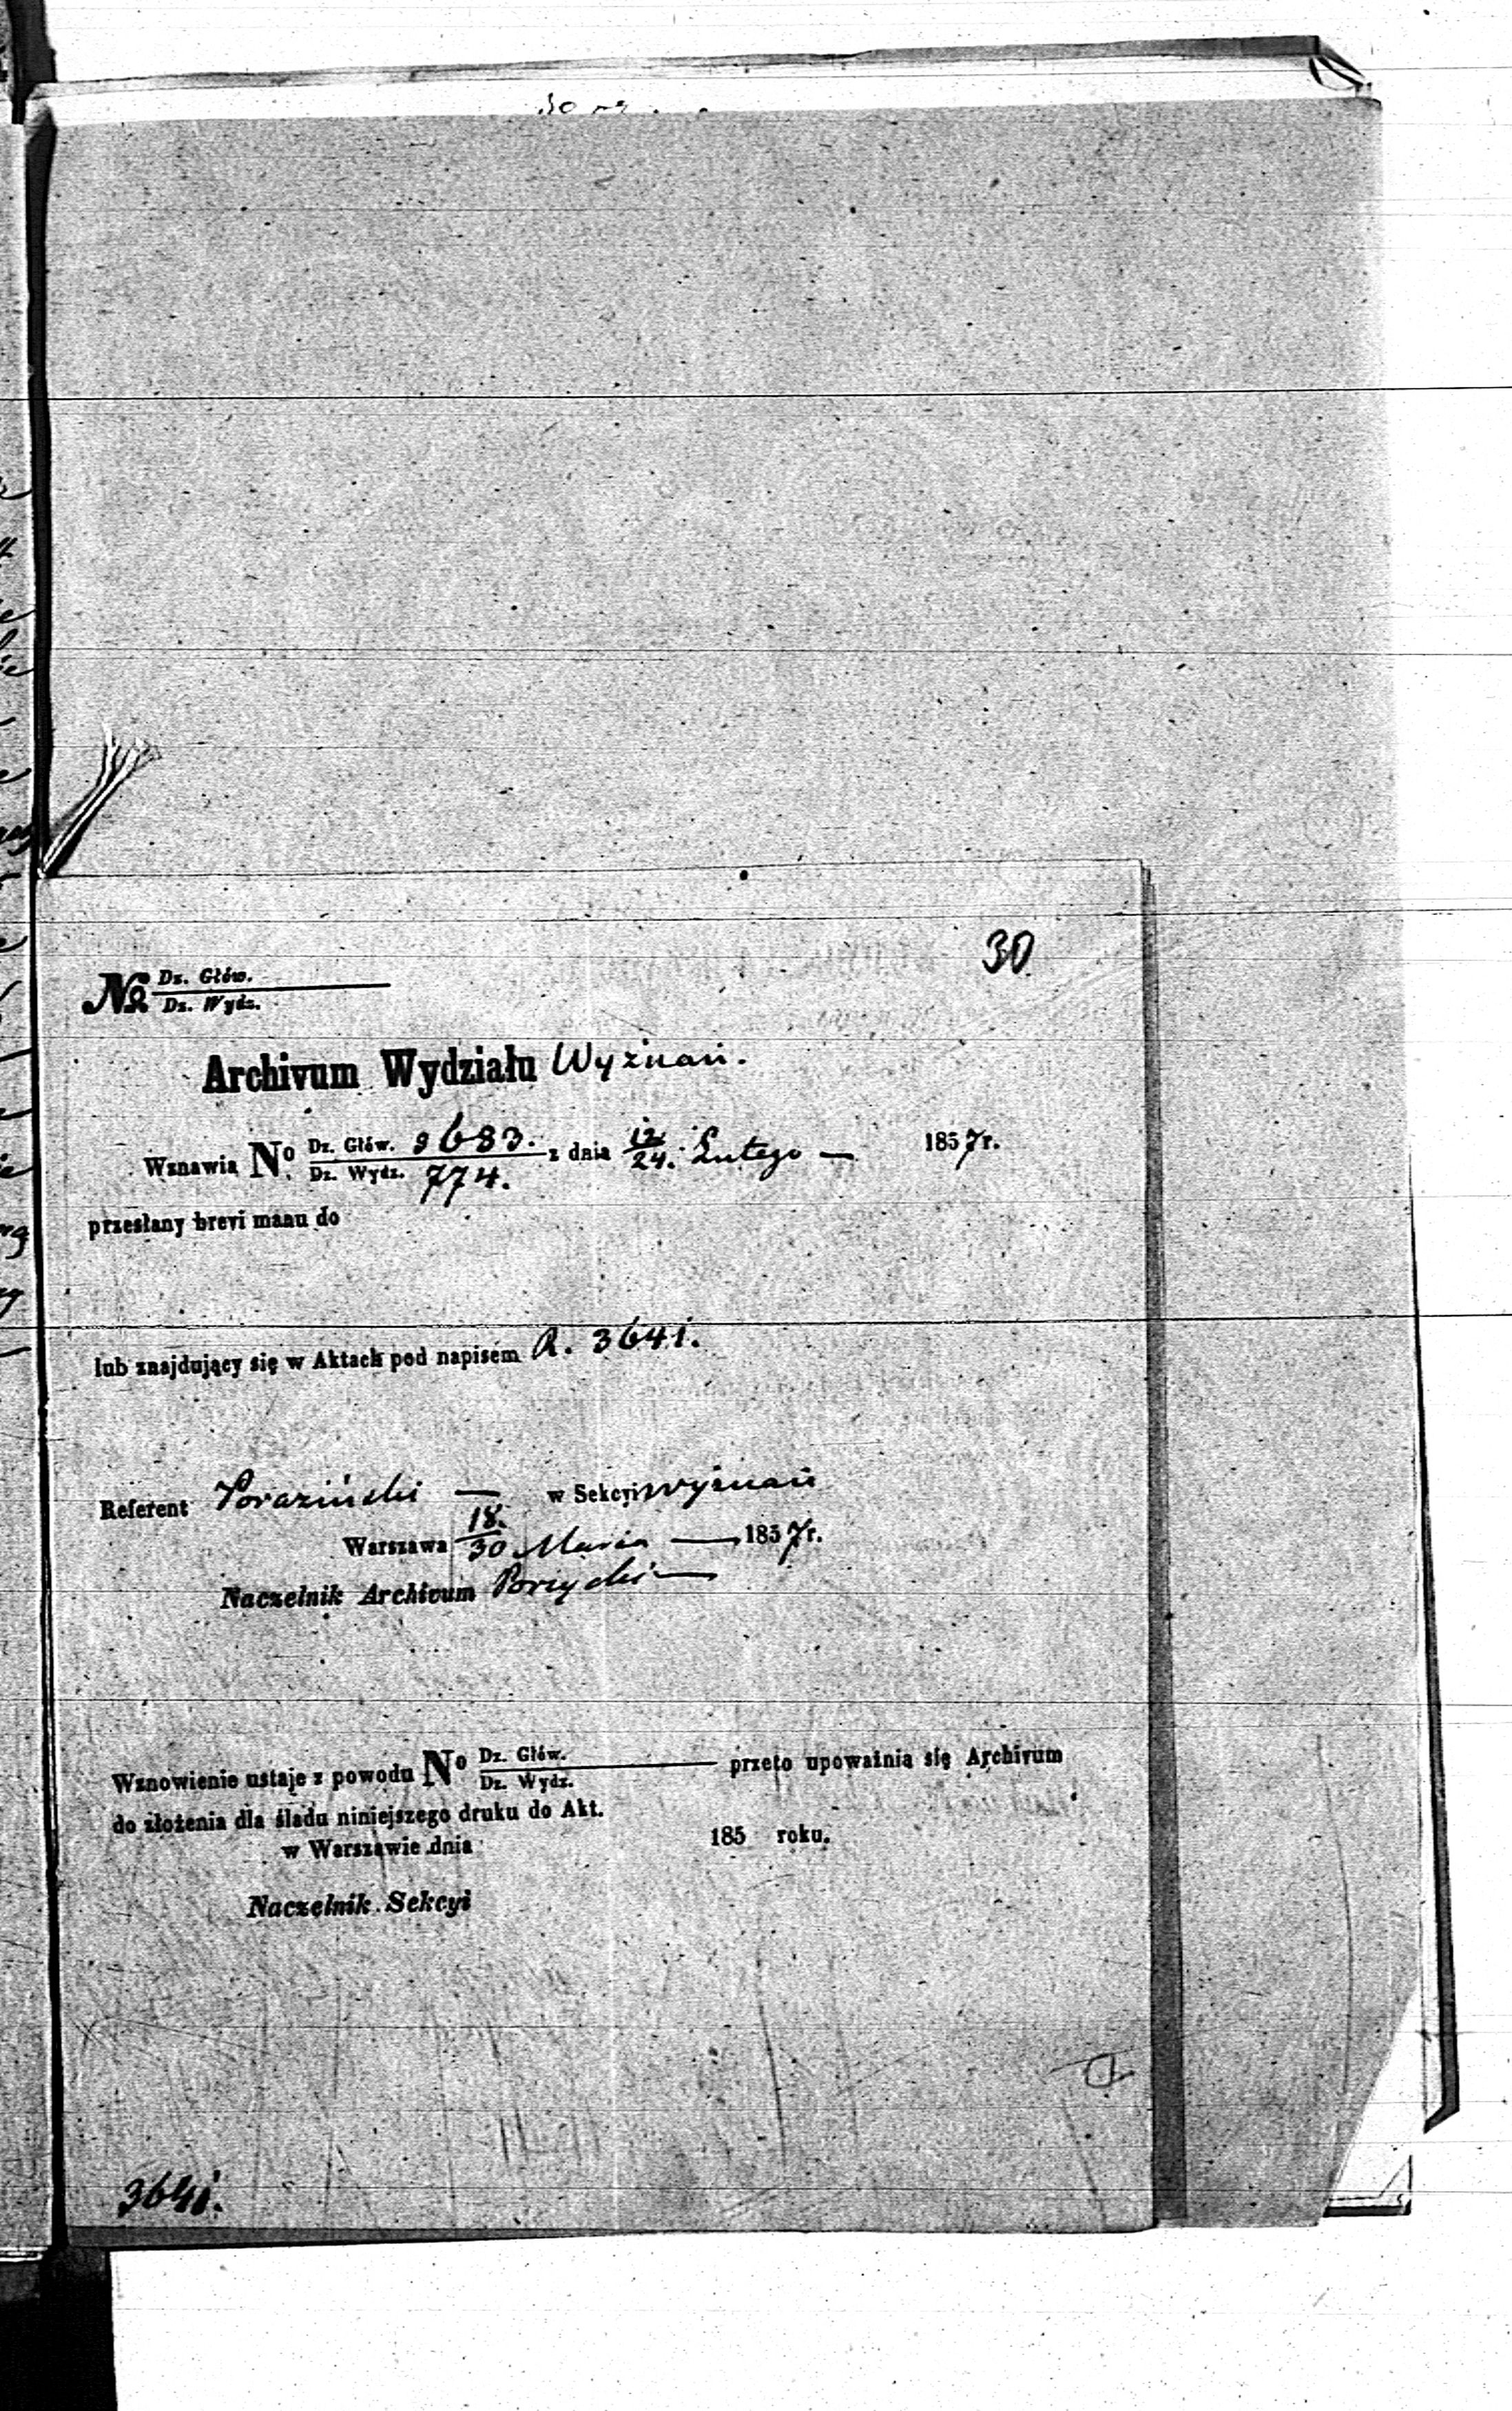 30
№ Dz. Głów.
Dz. Wydz.
Archivum Wydziału Wyznań.
Wznawia No. Dz. Głów. 9683. z dnia 12/24. Lutego — 1857 r.
Dz. Wydz. 774.
przesłany brevi manu do
lub znajdujący się w Aktach pod napisem R. 3641.
Referent — w Sekcyi Wyznań
Warszawa 18/30 Marca — 1857 r.
Naczelnik Archivum
Wznowienie ustaje z powodu No Dz. Głów. przeto upoważnia się Archivum
Dz. Wydz.
do złożenia dla śladu niniejszego druku do Akt.
w Warszawie dnia 185 roku.
Naczelnik Sekcyi
3641.